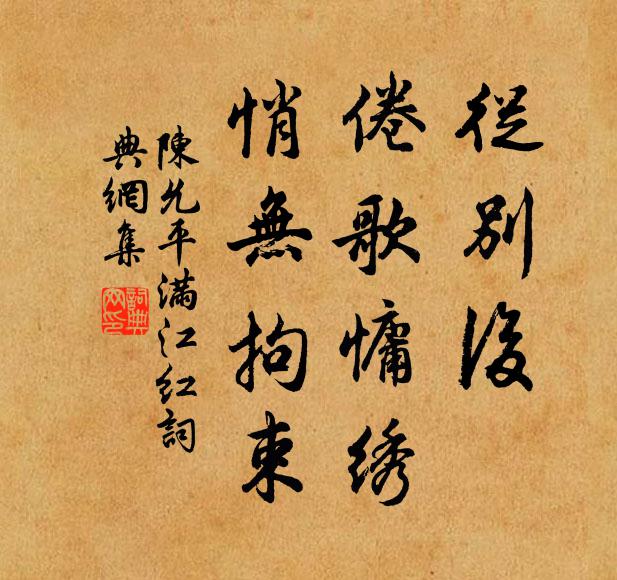 從別後
倦歌慵绣
悄無拘束
陳允平滿江红詞
典網集
詞典
网印